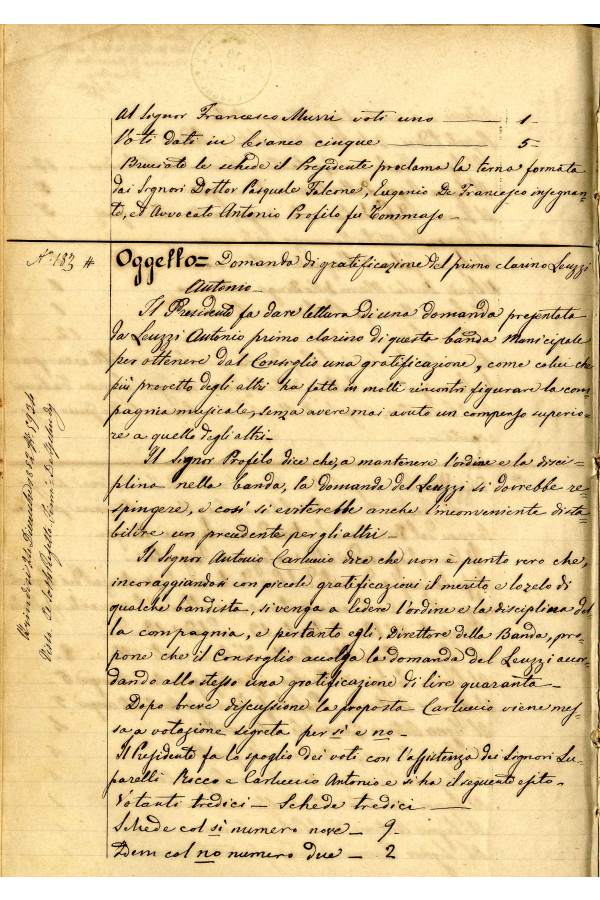 Al Signor Francesco Murri voti uno — 1-
Voti dati in bianco cinque — 5-
Bruciate le schede il Presidente proclama la terna formata
dai Signori Dottor Pasquale Falcone, Eugenio De Francesco insegnan-
te, ed Avvocato Antonio Profilo fu Tommaso-
N. 183 #
Oggetto= Domanda di gratificazione del primo clarino Leuzzi
Antonio-
Il Presidente fa dare lettura di una domanda presentata
da Leuzzi Antonio primo clarino di questa banda Municipale
per ottenere dal Consiglio una gratificazione, come colui che
più provetto degli altri ha fatto in molti rincontri figurare la com-
pagnia musicale, senza avere mai avuto un compenso superio-
re a quello degli altri-
Il Signor Profilo dice che, a mantenere l'ordine e la disci-
plina nella banda, la domanda del Leuzzi si dovrebbe re-
spingere, e così si eviterebbe anche l'inconveniente di sta-
bilire un precedente per gli altri-
Il Signor Antonio Carluccio dice che non è punto vero che,
incoraggiandosi con piccole gratificazioni il merito e lo zelo di
qualche bandista, si venga a ledere l'ordine e la disciplina del
la compagnia, e pertanto egli, Direttore della Banda, pro-
pone che il Consiglio accolga la domanda del Leuzzi accor-
dando allo stesso una gratificazione di lire quaranta-
Dopo breve discussione la proposta Carluccio viene mes-
sa a votazione segreta per si e no-
Il Presidente fa lo spoglio dei voti con l'assistenza dei Signori Lu-
parelli Rocco e Carluccio Antonio e si ha il seguente esito-
Votanti tredici — Schede tredici —
Schede col si numero nove — 9-
Idem col no numero due — 2
Brindisi li Dicembre 1885
Visto Il Sotto Prefetto